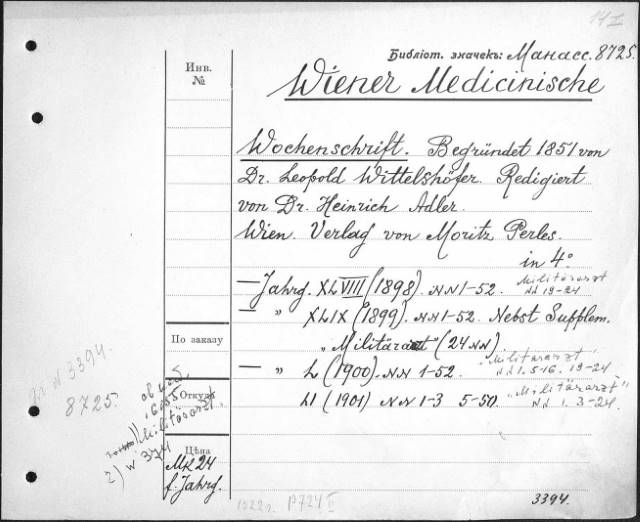 14 I
Библіот. значекъ: Манасс. 8725.
Инв.
№
Wiener Medicinische
Wochenschrift. Begründet 1851 von
Dr. Leopold Wittelshöfer. Redigiert
von Dr. Heinrich Adler.
Wien. Verlag von Moritz Perles.
in 4°
— Jahrg. XLVIII (1898). NN 1-52. Militärarzt
NN 19-24
— " XLIX (1899). NN 1-52. Nebst Supplem.
"Militärarzt" (24 NN)
По заказу
— " L (1900). NN 1-52 "Militärarzt"
NN 1. 5-16. 19-24
Откуда
LI (1901) NN 1-3 5-50. "Militärarzt"
NN 1. 3-24.
N 3394.
8725.
Militärarzt.
2) N 374
Цѣна
Mk 24
f. Jahrg.
P724 I
3394.